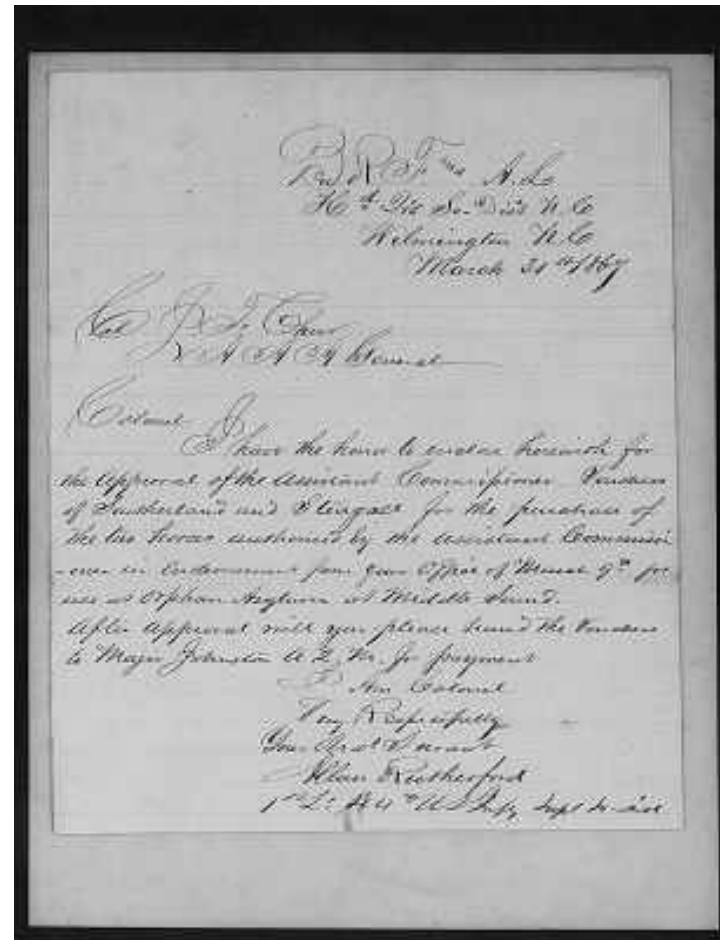 Bu R. F. and A. L.
Hd Qrs So. Dist N. C.
Wilmington N. C.
March 31st 1867
Col
A A A General
Colonel
I have the honor to enclose herewith for
the approval of the Assistant Commissioner Vouchers
of Southerland and for the purchase of
the two horses authorized by the Assistant Commissi
-oner in Endorsement from your Office of March 9th for
use at Orphan Asylum at Middle Sound.
After approval will you please hand the Vouchers
to Major Johnston A. Q. M. for payment
I am Colonel
Very Respectfully
Your Obdt Servant
Allan Rutherford
1st Lt 44th U S Infy Supt So. Dist